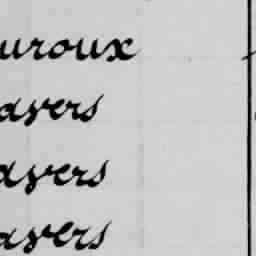 uroux
avers
avers
avers